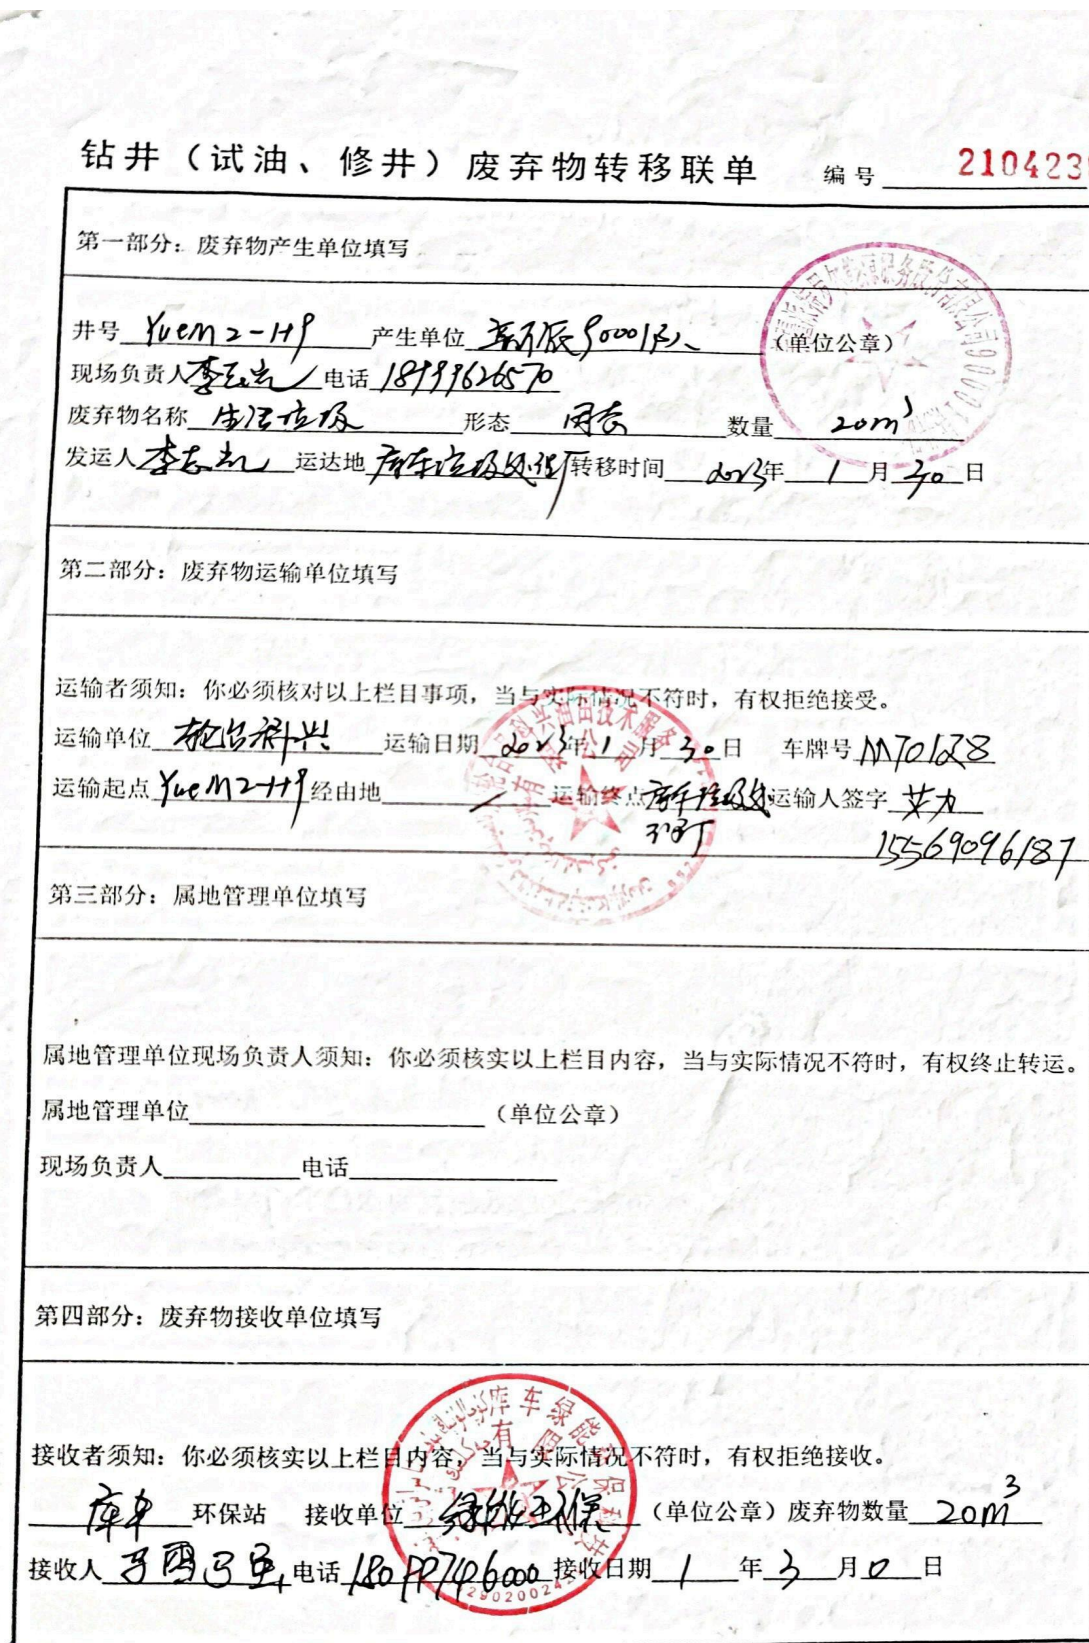 钻井（试油、修井）废弃物转移联单 编号 210423
第一部分：废弃物产生单位填写
井号 YueM2-H9 产生单位 90001队 （单位公章）
现场负责人 李志 电话 18999626570
废弃物名称 生活垃圾 形态 固态 数量 20m³
发运人 李志 运达地 库车垃圾处理厂 转移时间 2023年 1 月 30 日
第二部分：废弃物运输单位填写
运输者须知：你必须核对以上栏目事项，当与实际情况不符时，有权拒绝接受。
运输单位 轮台科兴 运输日期 2023年 1 月 30 日 车牌号
运输起点 YueM2-H9 经由地 / 运输终点 库车垃圾处 运输人签字 艾力
理厂 15569096187
第三部分：属地管理单位填写
属地管理单位现场负责人须知：你必须核实以上栏目内容，当与实际情况不符时，有权终止转运。
属地管理单位 （单位公章）
现场负责人 电话
第四部分：废弃物接收单位填写
接收者须知：你必须核实以上栏目内容，当与实际情况不符时，有权拒绝接收。
库车 环保站 接收单位 绿能环保 （单位公章）废弃物数量 20m³
接收人 电话 18099746000 接收日期 1 年 3 月 0 日